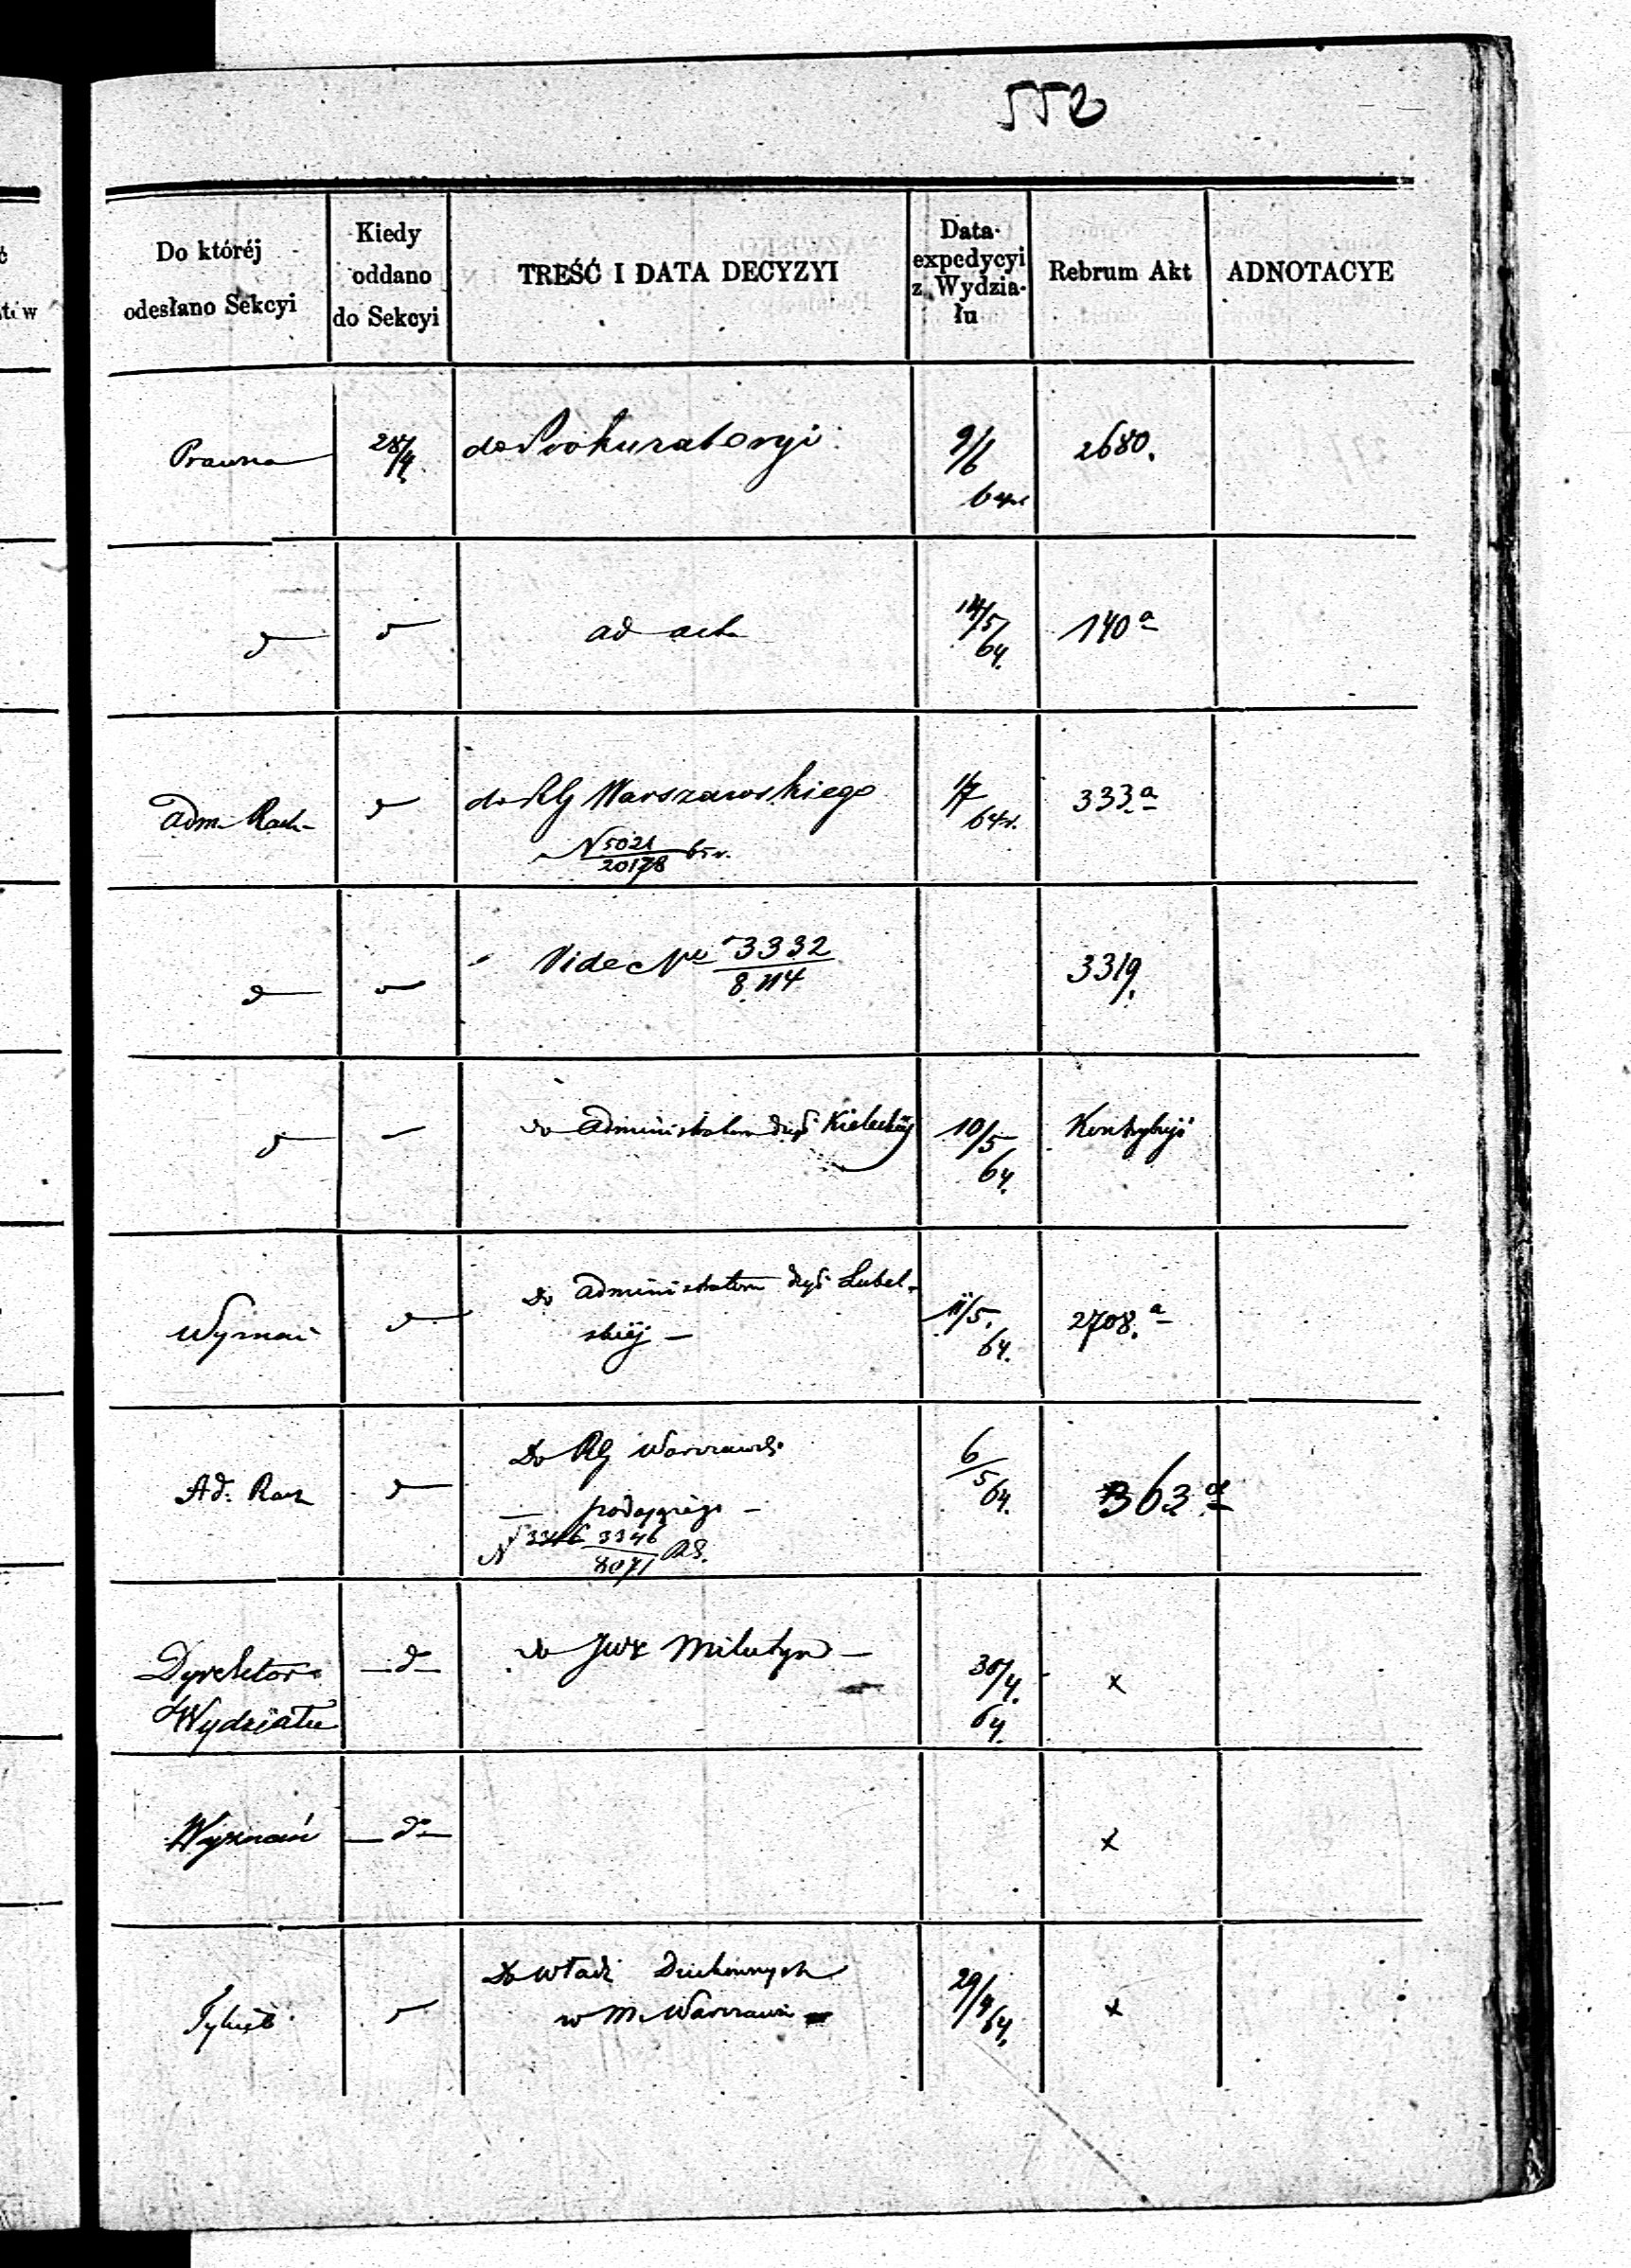 552
Do któréj
odesłano Sekcyi
Kiedy
oddano
do Sekcyi
TREŚĆ I DATA DECYZYI
Data
expedycyi
z Wydzia-
łu
Rebrum Akt
ADNOTACYE
Prawna 28/4 do Prokuratoryi 9/6 64r 2680.
d d ad acta 14/5 64. 140 a
Adm. Rach. d do RG Warszawskiego 1/7 64r. 333 a
N 5021/20178 65r.
d Vide Nr 3332/8114 3319.
d do Administratora dyec Kieleckiej 10/5 64. Kontrybucyi
Wyznań d do Administratora dyec Lubel- 11/5. 64. 2708. a
skiej —
Ad. Rach d Do RG Warszawsk. 6/5 64. 363 a
N 3346 3346/8071
Dyrektor — d — do JWR Milutyn — 30/4. 64. x
Wydziału
Wyznań — d — x
Do Władz Duchownych 29/4 64. x
w M. Warszawie